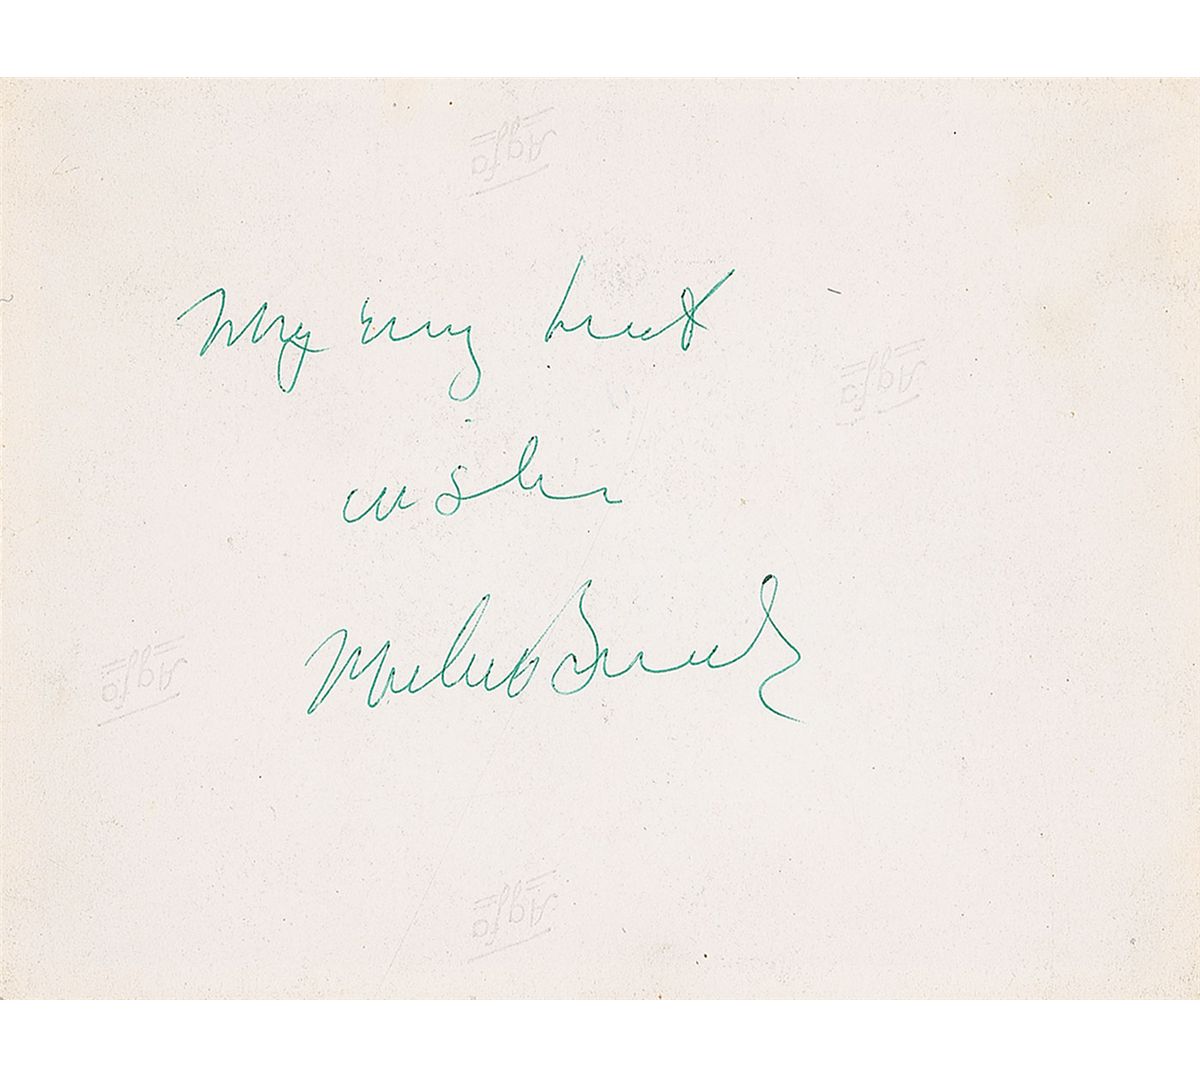 Agfa
My very best
Agfa
wishes
Agfa
Agfa